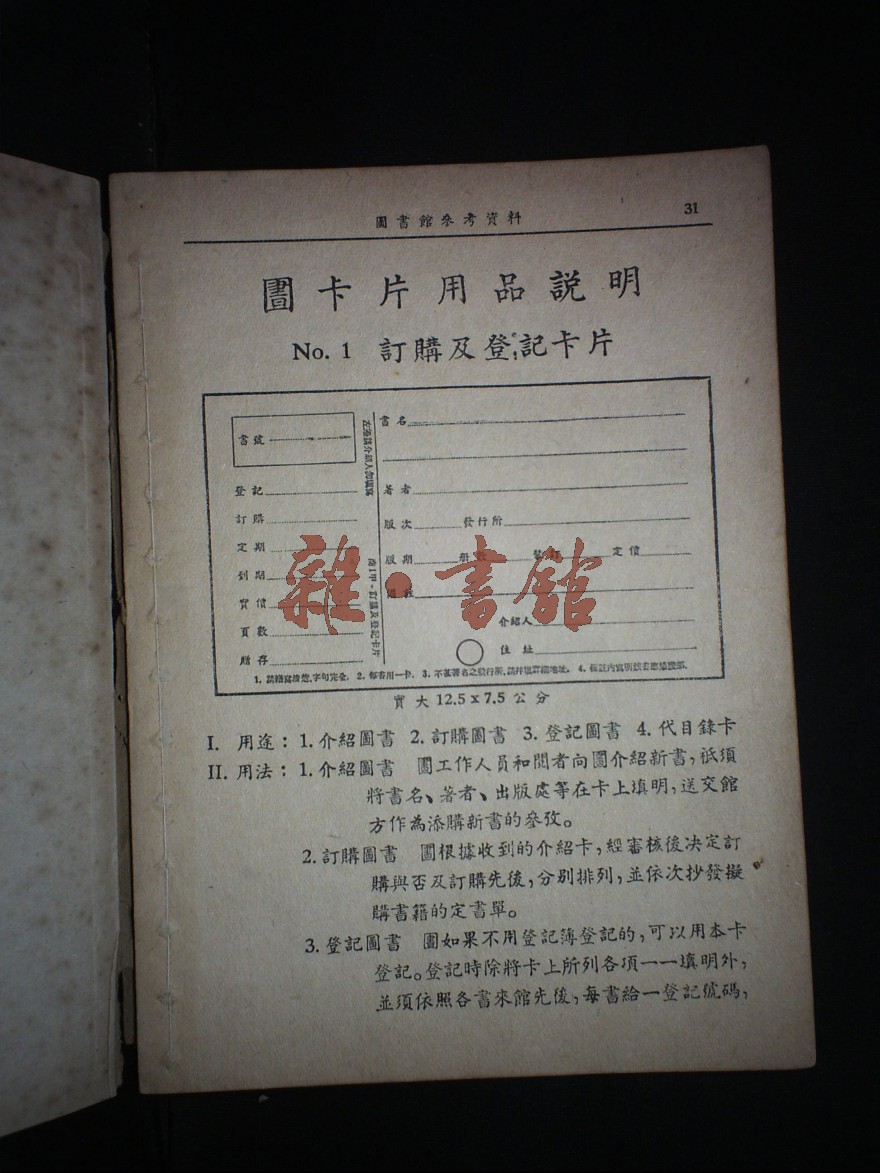 圖書館參考資料
31
圕卡片用品説明
No. 1 訂購及登記卡片
書號
登記
訂購
定期
到期
實價
頁數
贈存
左邊請介紹人勿填寫
訂購及登記卡片
書名
著者
版次 發行所
版期 定價
介紹人
住址
雜·書館
實大 12.5 x 7.5 公分
I. 用途：1. 介紹圖書 2. 訂購圖書 3. 登記圖書 4. 代目錄卡
II. 用法：1. 介紹圖書 圕工作人員和閱者向圕介紹新書，祇須
將書名、著者、出版處等在卡上填明，送交館
方作為添購新書的參攷。
2. 訂購圖書 圕根據收到的介紹卡，經審核後决定訂
購與否及訂購先後，分別排列，並依次抄發擬
購書籍的定書單。
3. 登記圖書 圕如果不用登記簿登記的，可以用本卡
登記。登記時除將卡上所列各項一一填明外，
並須依照各書來館先後，每書給一登記號碼，